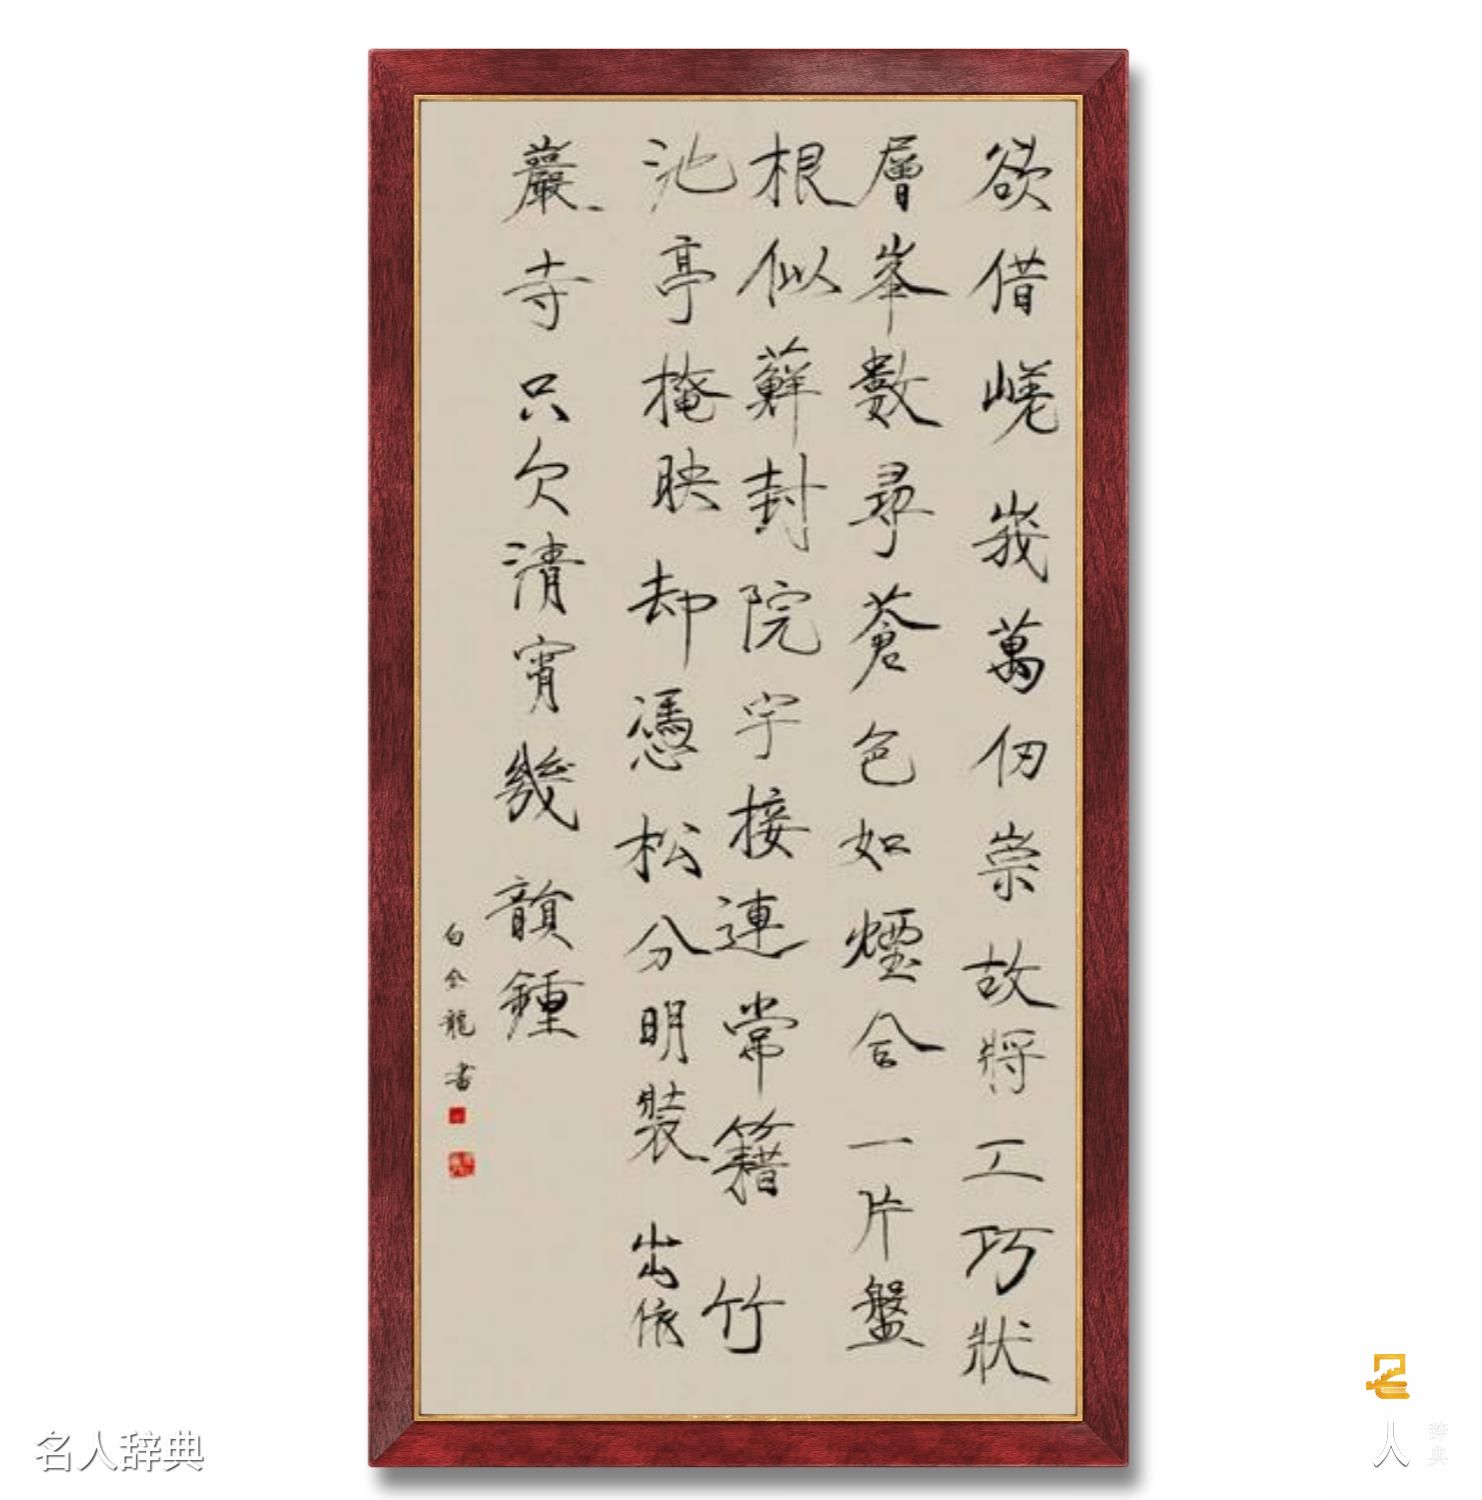 欲借嵯峩萬仞崇故將工巧狀
層峯數尋蒼色如煙合一片盤
根似蘚封院宇接連常籍竹
池亭掩映却憑松分明裝出依
巖寺只欠清宵幾韻鍾
白金龍書
名人辞典
名
人
辞典